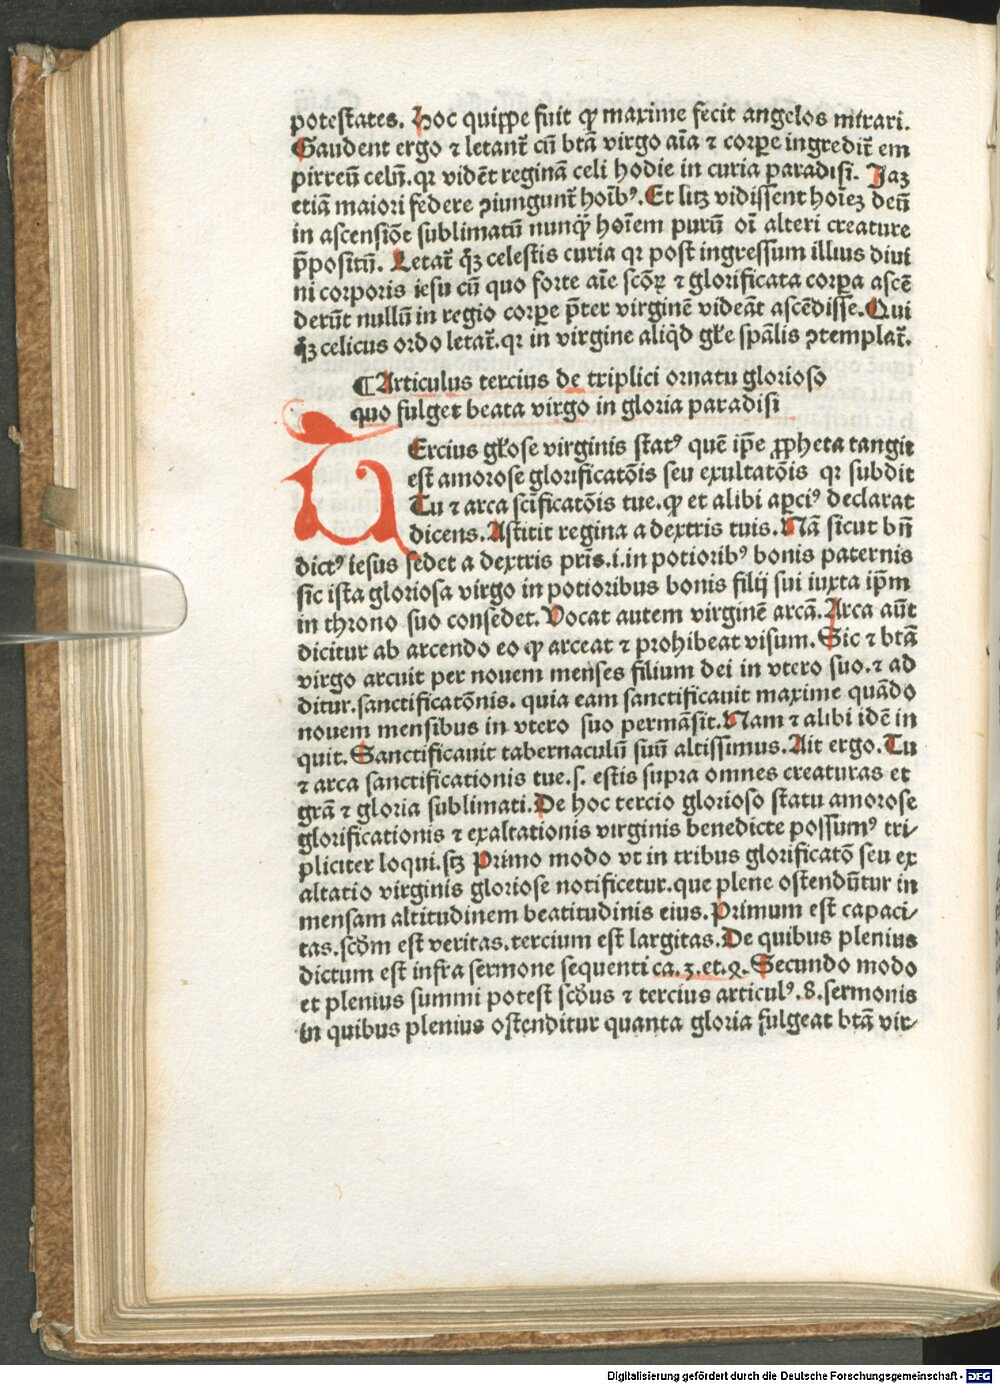 potestates. Hoc quippe fuit ꝙ maxime fecit angelos mirari.
Gaudent ergo ⁊ letant᷑ cū btā virgo aīa ⁊ corꝑe ingredit᷑ em
pirreū celū.qꝛ vidēt reginā celi hodie in curia paradisi. Jaꝫ
etiā maiori federe ꝯiungunt᷑ hoībꝰ. Et licꝫ vidissent hoīeꝫ deū
in ascensiōe sublimatū nunq̄ȝ hoīem purū oī alteri creature
p̄positū. Letat᷑ q̄ꝫ celestis curia qꝛ post ingressum illius diui
ni corporis iesu cū quo forte aīe scōꝝ ⁊ glorificata corꝑa ascē
derūt nullū in regio corꝑe p̄ter virginē videāt ascēdisse. Qui
q̄ꝫ celicus ordo letat᷑.qꝛ in virgine aliqd̄ gl̄e spālis ꝯtemplat᷑.
¶ Articulus tercius de triplici ornatu glorioso
quo fulget beata virgo in gloria paradisi
TErcius gl̄ose virginis statꝰ quē ip̄e ꝓpheta tangit
est amorose glorificatōis seu exultatōis qꝛ subdit
Tu ⁊ arca scīficatōis tue.ꝙ et alibi aꝑciꝰ declarat
dicens. Astitit regina a dextris tuis. Nā sicut bn̄
dictꝰ iesus sedet a dextris pr̄is.i.in potioribꝰ bonis paternis
sic ista gloriosa virgo in potioribus bonis filij sui iuxta ip̄m
in throno suo consedet. Vocat autem virginē arcā. Arca aūt
dicitur ab arcendo eo ꝙ arceat ⁊ prohibeat visum. Sic ⁊ btā
virgo arcuit per nouem menses filium dei in vtero suo.⁊ ad
ditur.sanctificatōnis. quia eam sanctificauit maxime quādo
nouem mensibus in vtero suo permāsit. Nam ⁊ alibi idē in
quit. Sanctificauit tabernaculū suū altissimus. Ait ergo. Tu
⁊ arca sanctificationis tue.s. estis supra omnes creaturas et
grā ⁊ gloria sublimati. De hoc tercio glorioso statu amorose
glorificationis ⁊ exaltationis virginis benedicte possumꝰ tri/
pliciter loqui.scꝫ Primo modo vt in tribus glorificatō seu ex
altatio virginis gloriose notificetur.que plene ostendūtur in
mensam altitudinem beatitudinis eius. Primum est capaci/
tas.scd̄m est veritas.tercium est largitas. De quibus plenius
dictum est infra sermone sequenti ca.3.et.9. Secundo modo
et plenius summi potest scd̄us ⁊ tercius articulꝰ.8.sermonis
in quibus plenius ostenditur quanta gloria fulgeat btā vir/
Digitalisierung gefördert durch die Deutsche Forschungsgemeinschaft - DFG